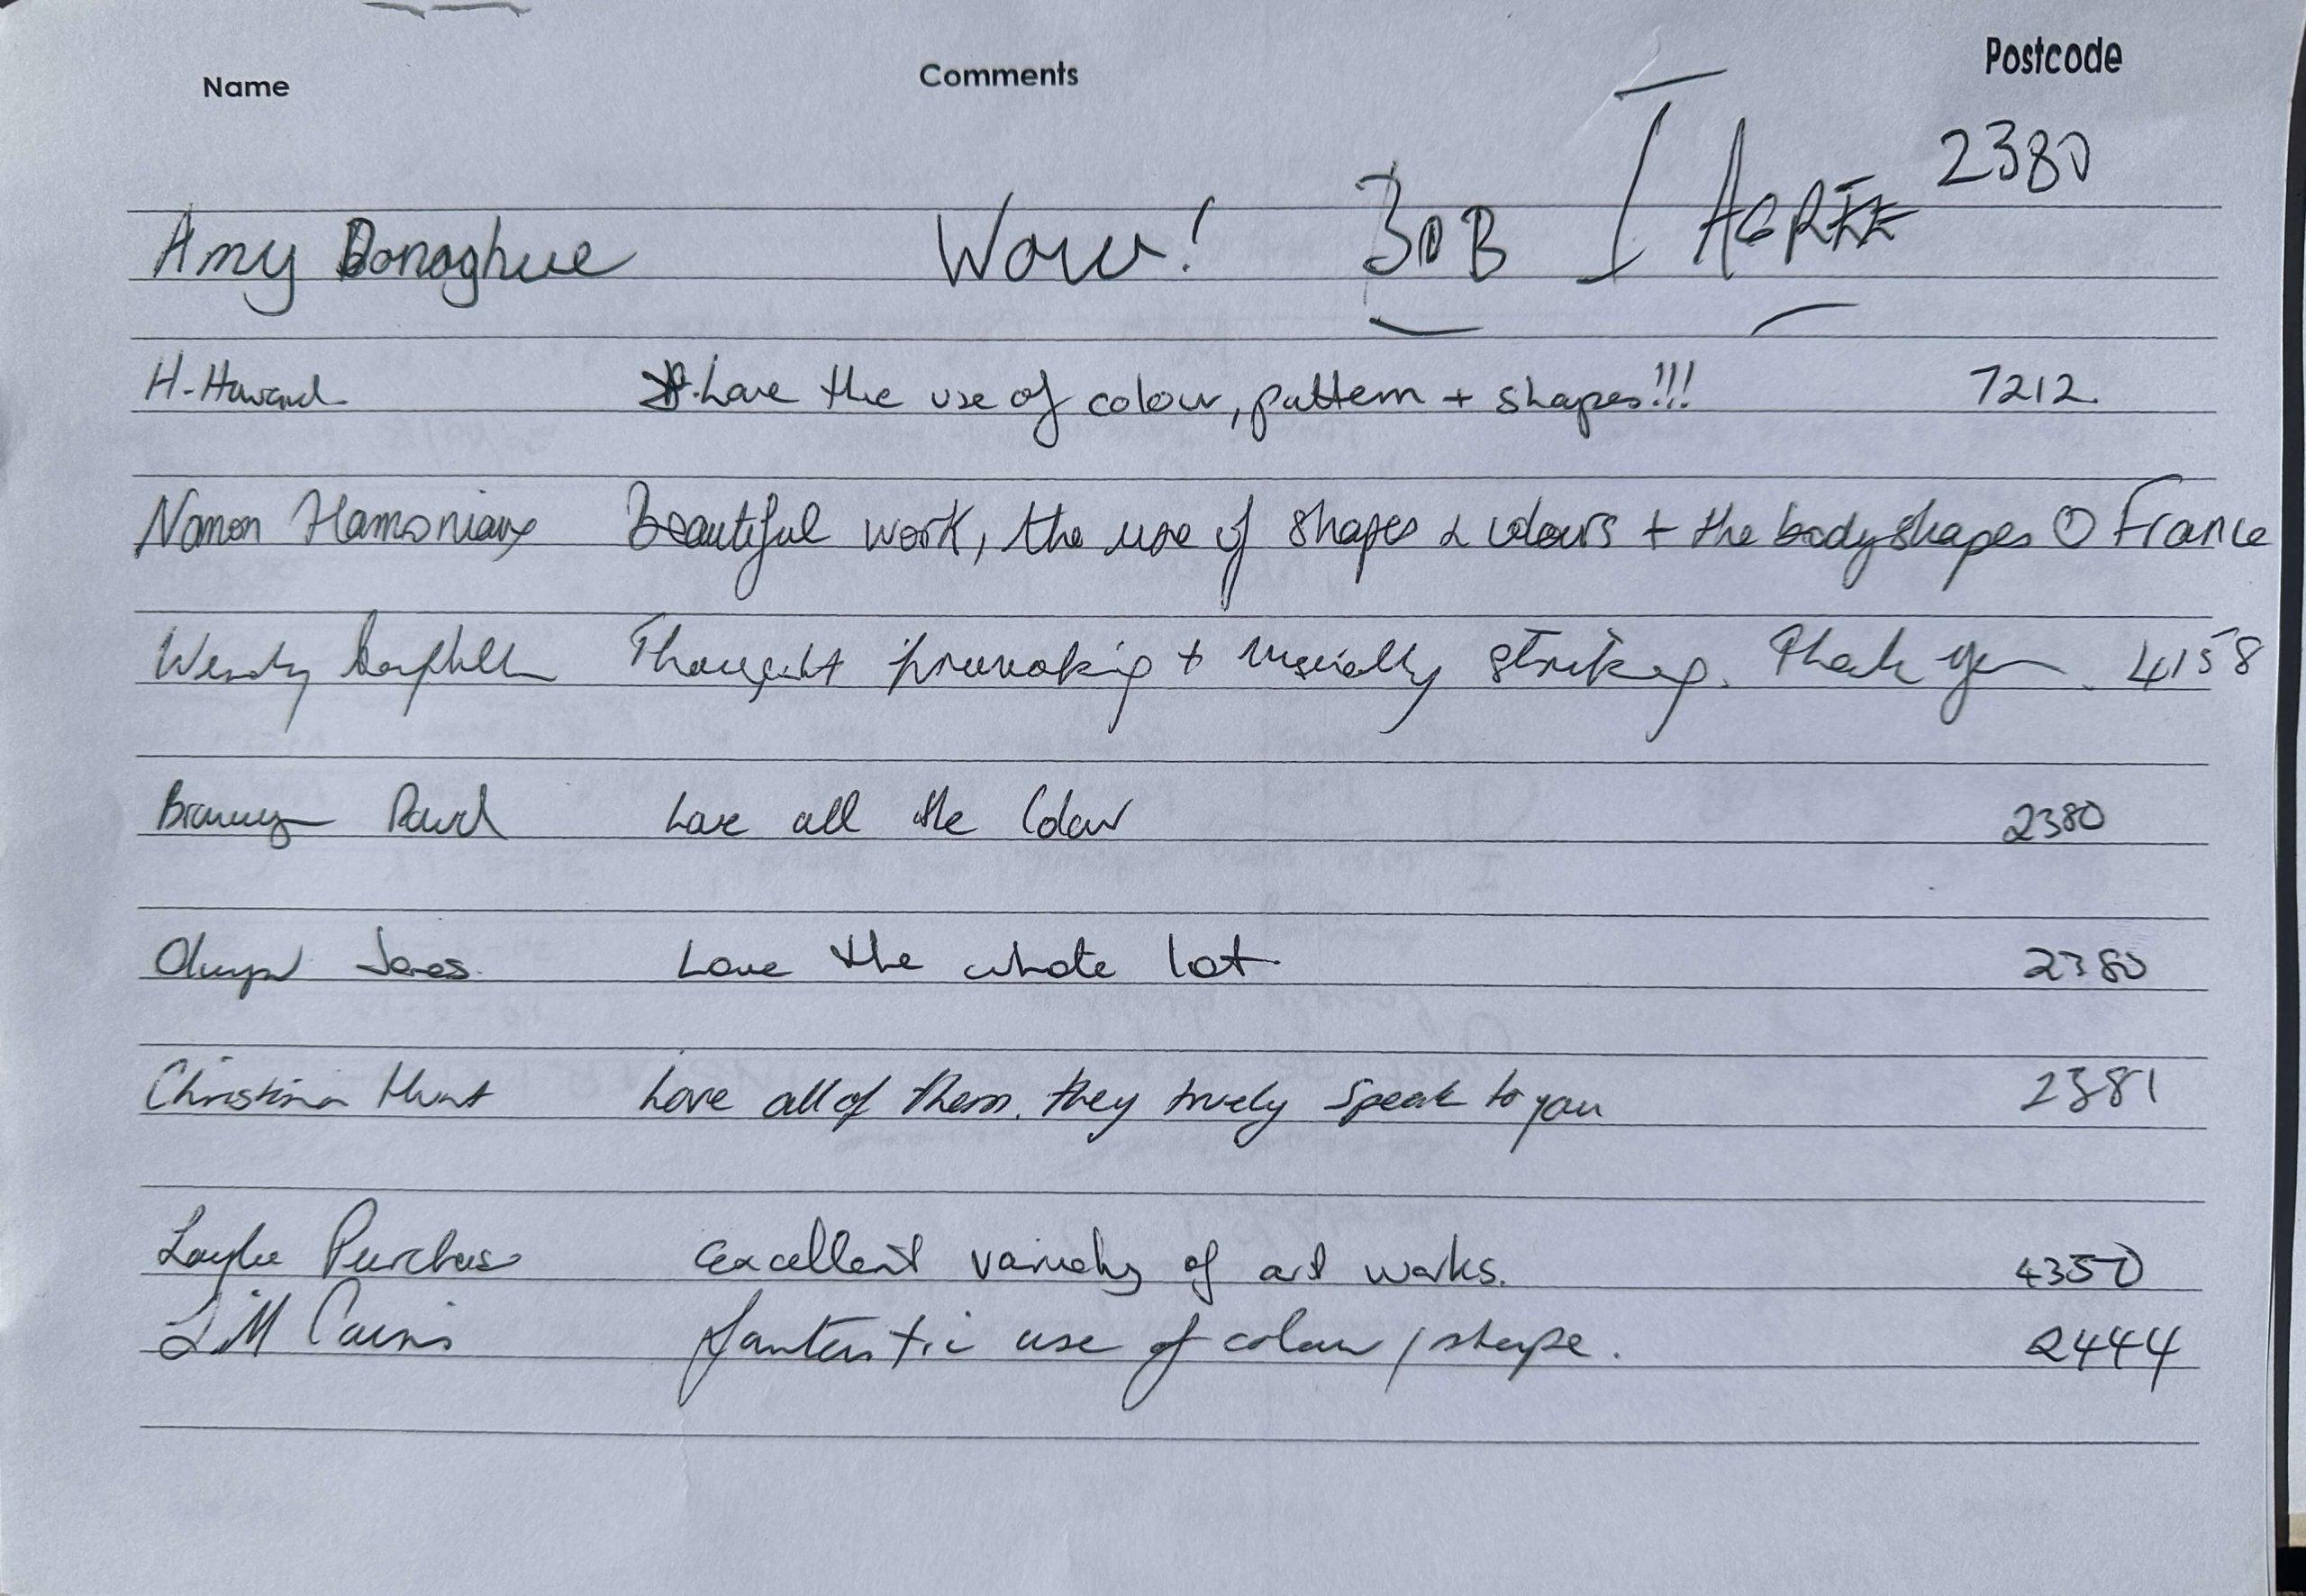 Name Comments Postcode
Amy Donoghue Wow! BOB I AGREE 2380
H. Howard Love the use of colour, pattern + shapes!!! 7212.
Nanon Hamoniaux Beautiful work, the use of shapes & colours + the body shapes France
Wendy Thought provoking + visually striking. Thank you. 4158
Bronwyn David Love all the Colour 2380
Olwyn Jones. Love the whole lot. 2380
Christina Hunt Love all of them. they truely speak to you 2381
Purchase excellent variety of art works. 4350
Cairns fantastic use of colour / shape. 2444